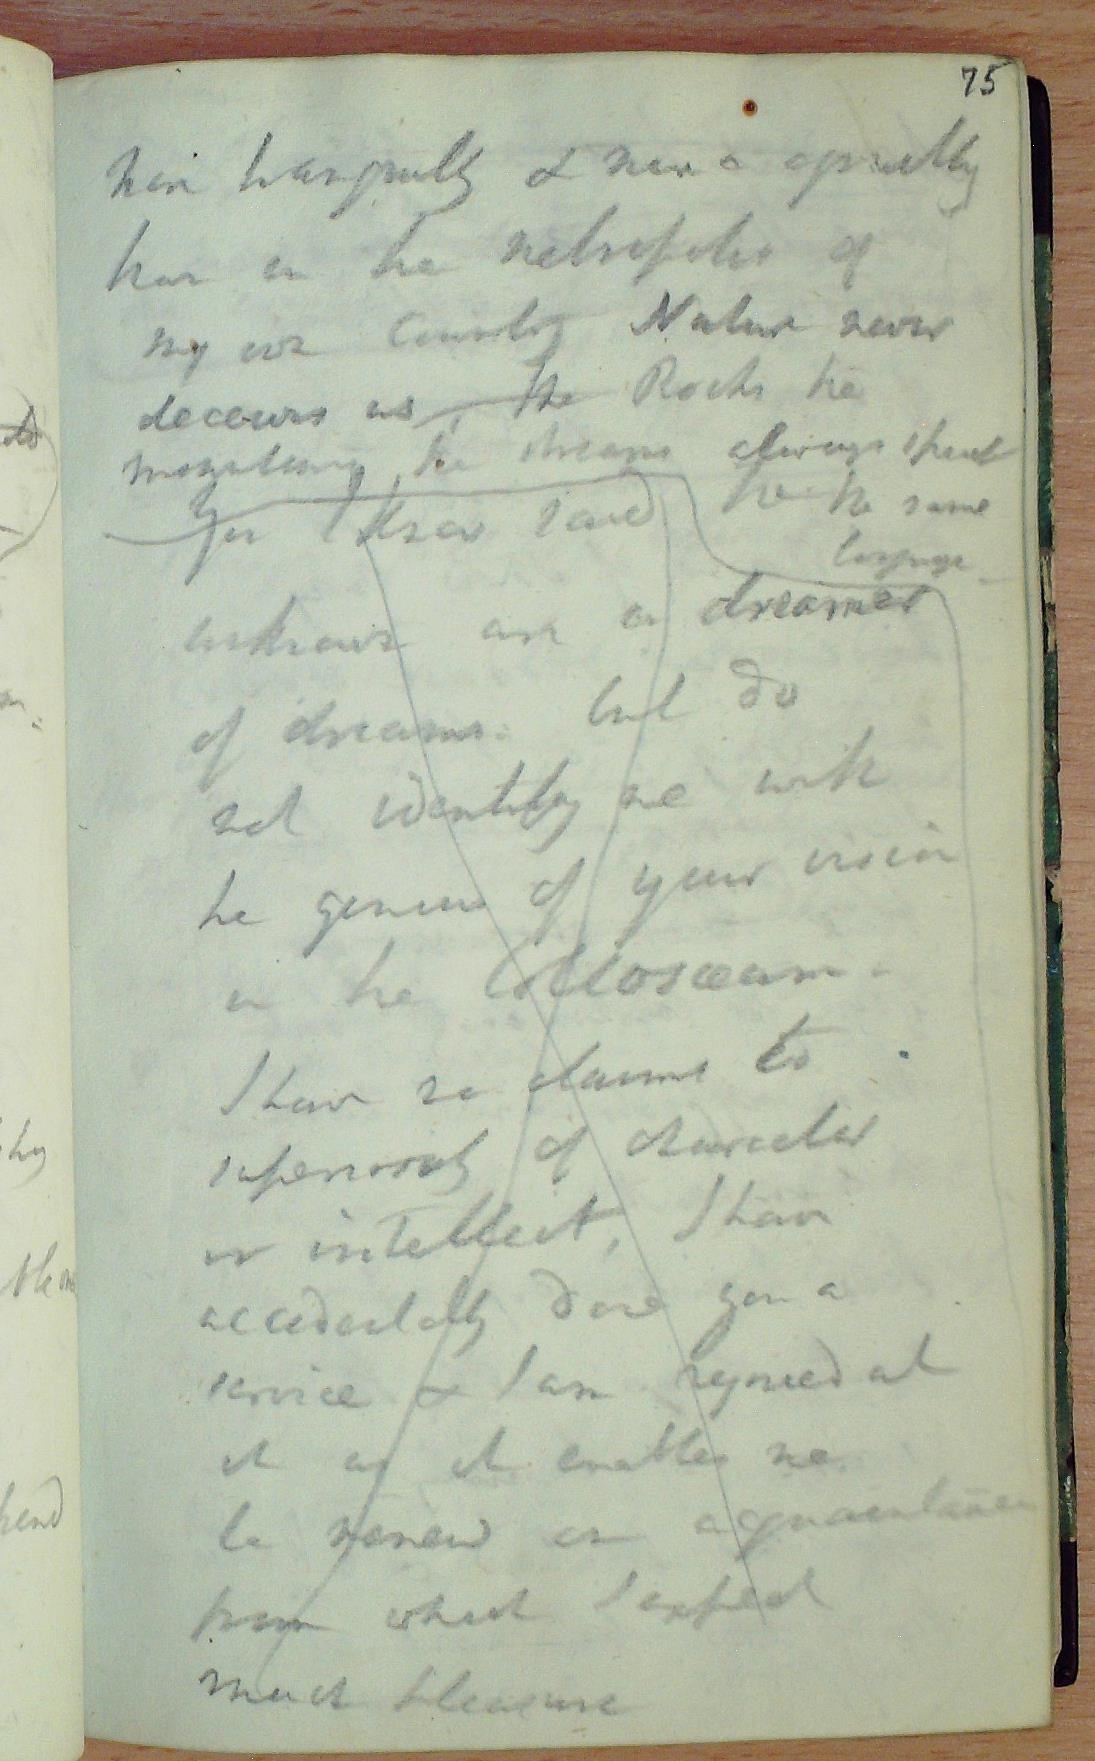 75
more tranquility & more equality
than in the metropolis of
my own Country Nature never
deceives us, the Rocks the
mountains, the streams always speak
the same
language
Yes I know said the
unknown am a dreamer
of dreams. but do
not identify me with
the genius of your vision
in the Collosæum.
I have no claims to
superiority of character
or intellect, I have
accidentally done you a
service & I am rejoiced at
it as it enables me
to renew an acquaintance
from which I expect
much pleasure